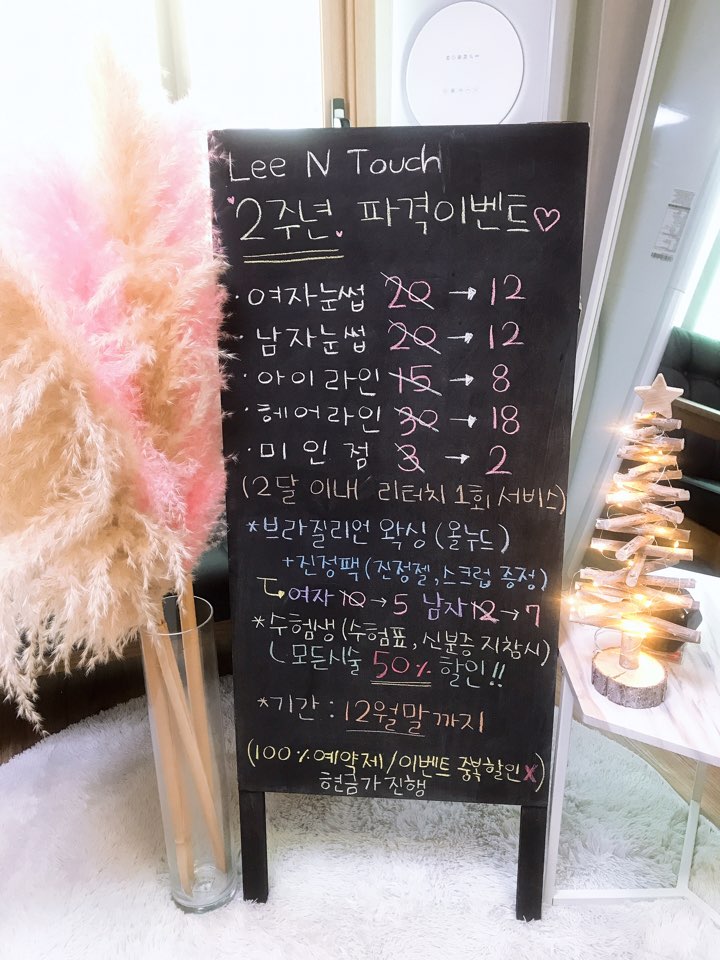 Lee N Touch
2주년 파격이벤트♡
·여자눈썹 20 → 12
·남자눈썹 20 → 12
·아이라인 15 → 8
·헤어라인 30 → 18
·미인점 3 → 2
(2달 이내 리터치 1회 서비스)
*브라질리언 왁싱 (올누드)
+진정팩 (진정젤, 스크럽 증정)
↳여자 10 → 5 남자 12 → 7
*수험생 (수험표, 신분증 지참시)
ㄴ모든시술 50% 할인!!
*기간 : 12월말까지
(100% 예약제 / 이벤트 중복할인 X)
현금가 진행